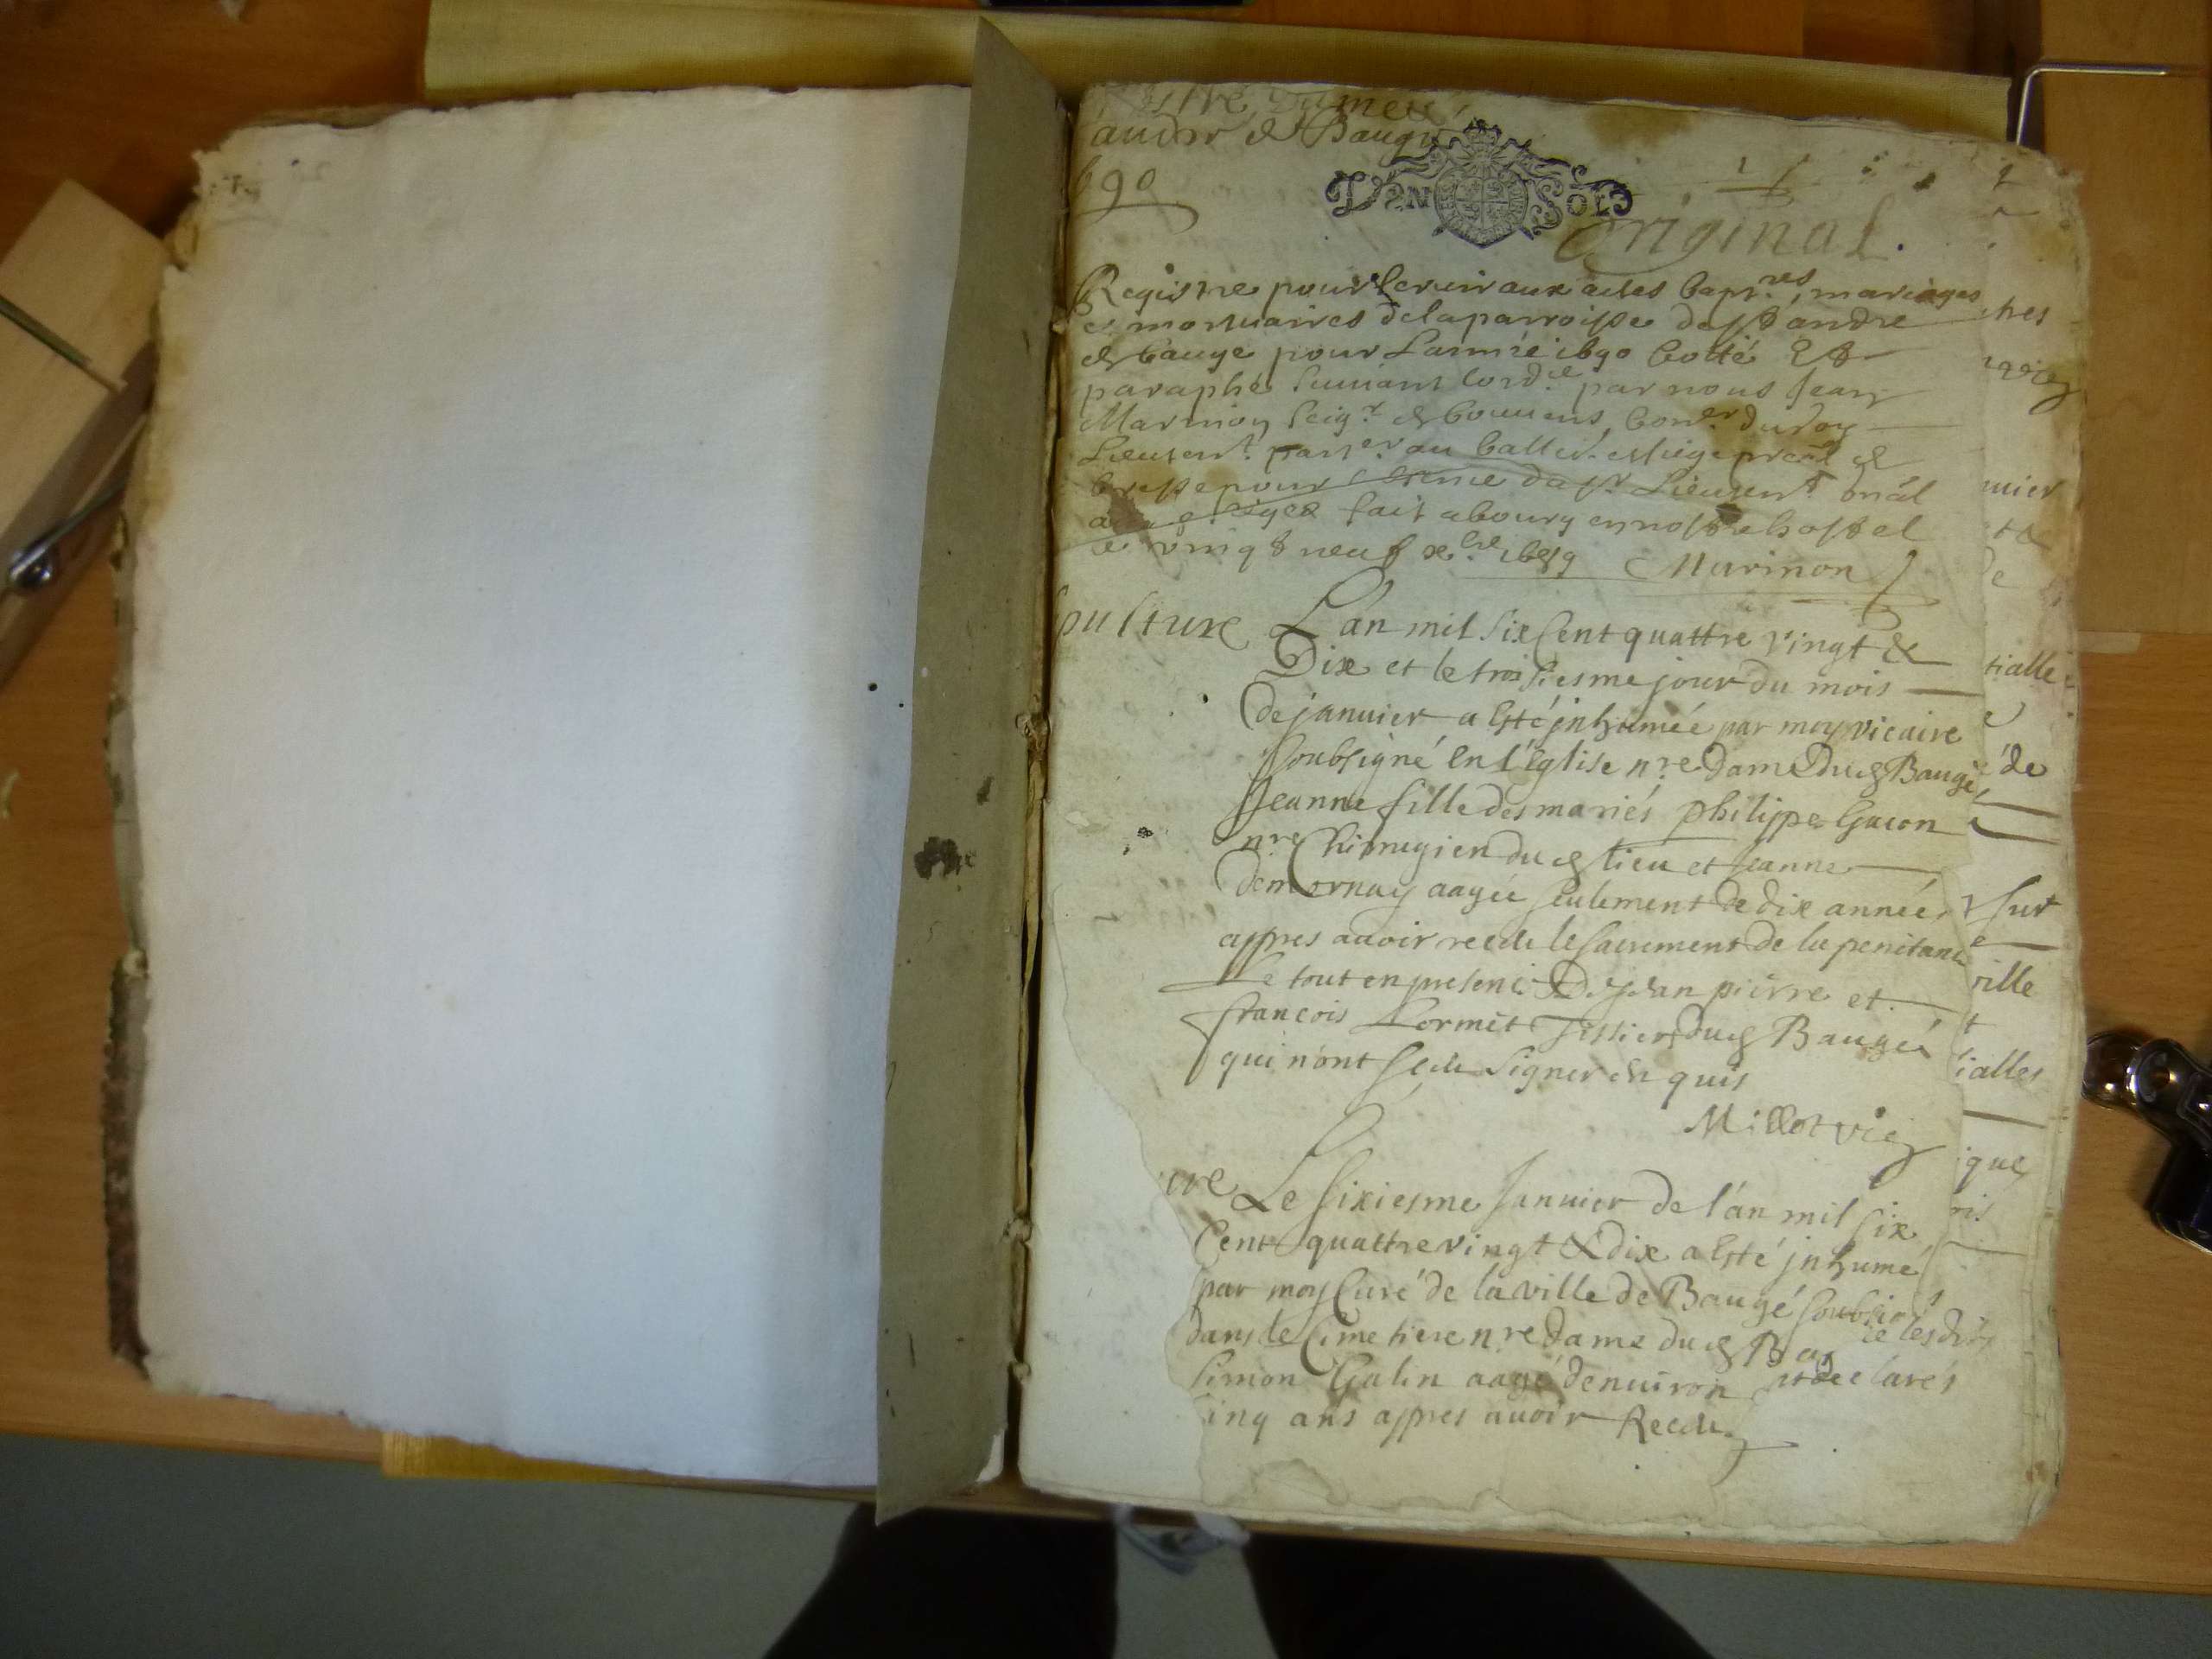 andre de Baugé
690
D'VN SOL
Original.
Registre pour servir aux actes bapt.res, mariages
et mortuaires de la parroisse de st andre
de bauge pour l'année 1690 cotté Et
paraphé suivant lord.ce par nous Jean
Marinon seig.r de , con.er du roy
Lieuten.t par.er au balli. et siege pre.al de
bresse pour du s.r Lieuten.t
fait a bourg en nostre hostel
le vingt neuf x.bre 1689 Marinon
pulture L'an mil six Cent quattre vingt &
Dix et le troisiesme jour du mois
de januier a Esté jnhumée par moy vicaire
soubsigné En l'Eglise n.re Dame dud Baugé
Jeanne fille des mariés philippe Gacon
n.re Chirurgien dud lieu et Jeanne
demornay aagée seulement de dix années
appres auoir recdu le sacrement de la penitance
Le tout en presence De Jean pierre et
françois Lormet Tissiers dud Baugé
qui n'ont scdu signer En quis
Millot vic
ure Le sixiesme Januier de l'an mil six
Cent quattre vingt & dix a Esté jnhumé
par moy Curé de la ville de Baugé soubsig
dans le Cimetiere n.re Dame dud Bau
simon Galin aagé denuiron
inq ans appres auoir Recdu
declarés
hes
uier
et de
de
tialle
de
sur
ville
et
ialles
ique